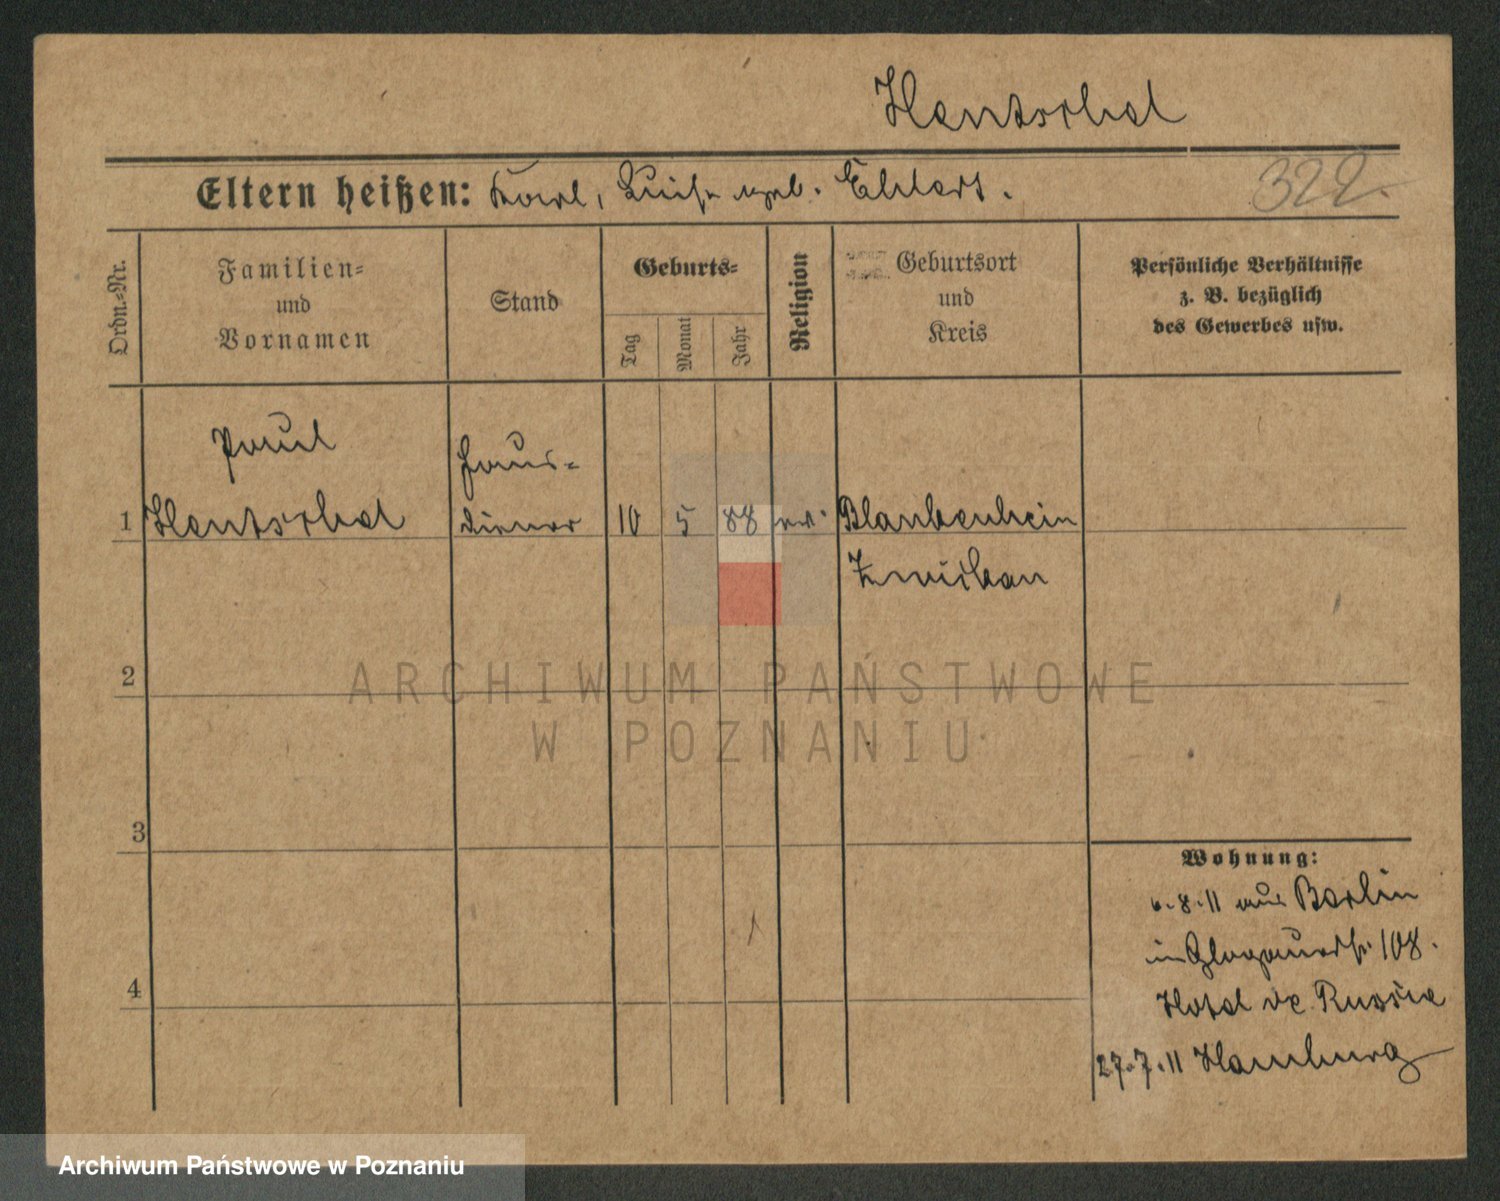 Hentschel
Eltern heißen: Karl, Luise geb. Ehlert.
322.
Ordn.-Nr.
Familien-
und
Vornamen
Stand
Geburts-
Tag
Monat
Jahr
Religion
Geburtsort
und
Kreis
Persönliche Verhältnisse
z. B. bezüglich
des Gewerbes usw.
Paul
Haus-
1 Hentschel diener 10 5 88 ev. Blankenhein
Zwickau
2
3
4
Wohnung:
8.11 aus Berlin
in Glogauerstr. 108.
Hotel de Russie
27.7.11 Hamburg
ARCHIWUM PAŃSTWOWE
W POZNANIU
Archiwum Państwowe w Poznaniu